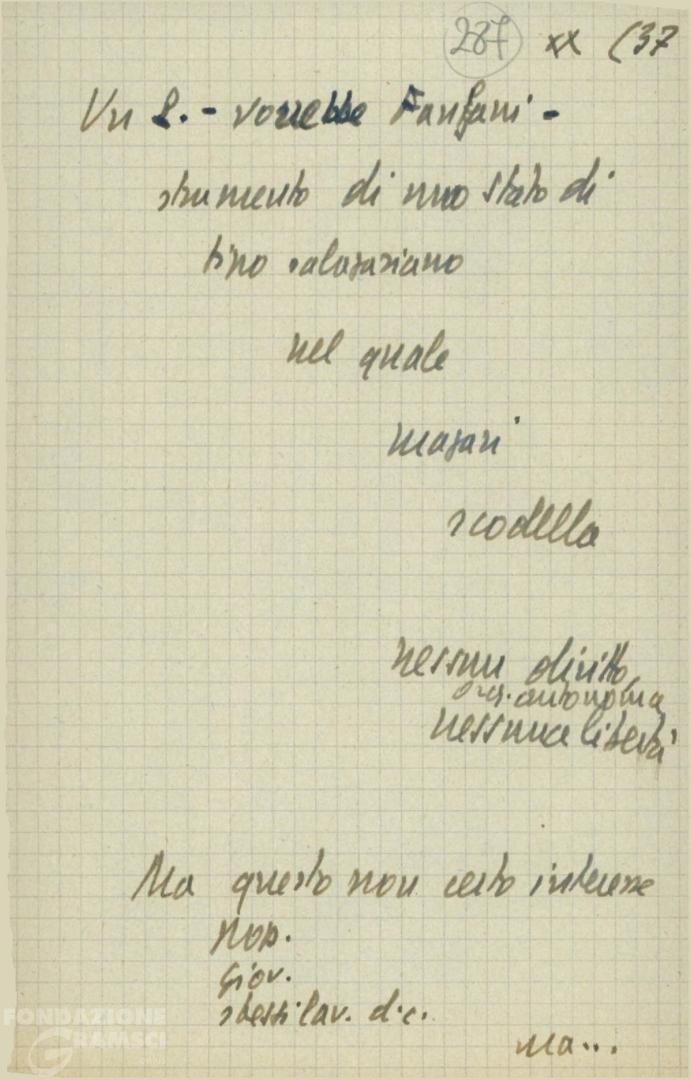 287 xx (37
Un P. - vorrebbe Fanfani -
strumento di uno Stato di
tipo salazariano
nel quale
magari
scodella
nessun diritto
org. autonoma
nessuna libertà
Ma questo non certo interesse
pop.
giov.
stessi lav. d.c.
ma...
FONDAZIONE
GRAMSCI